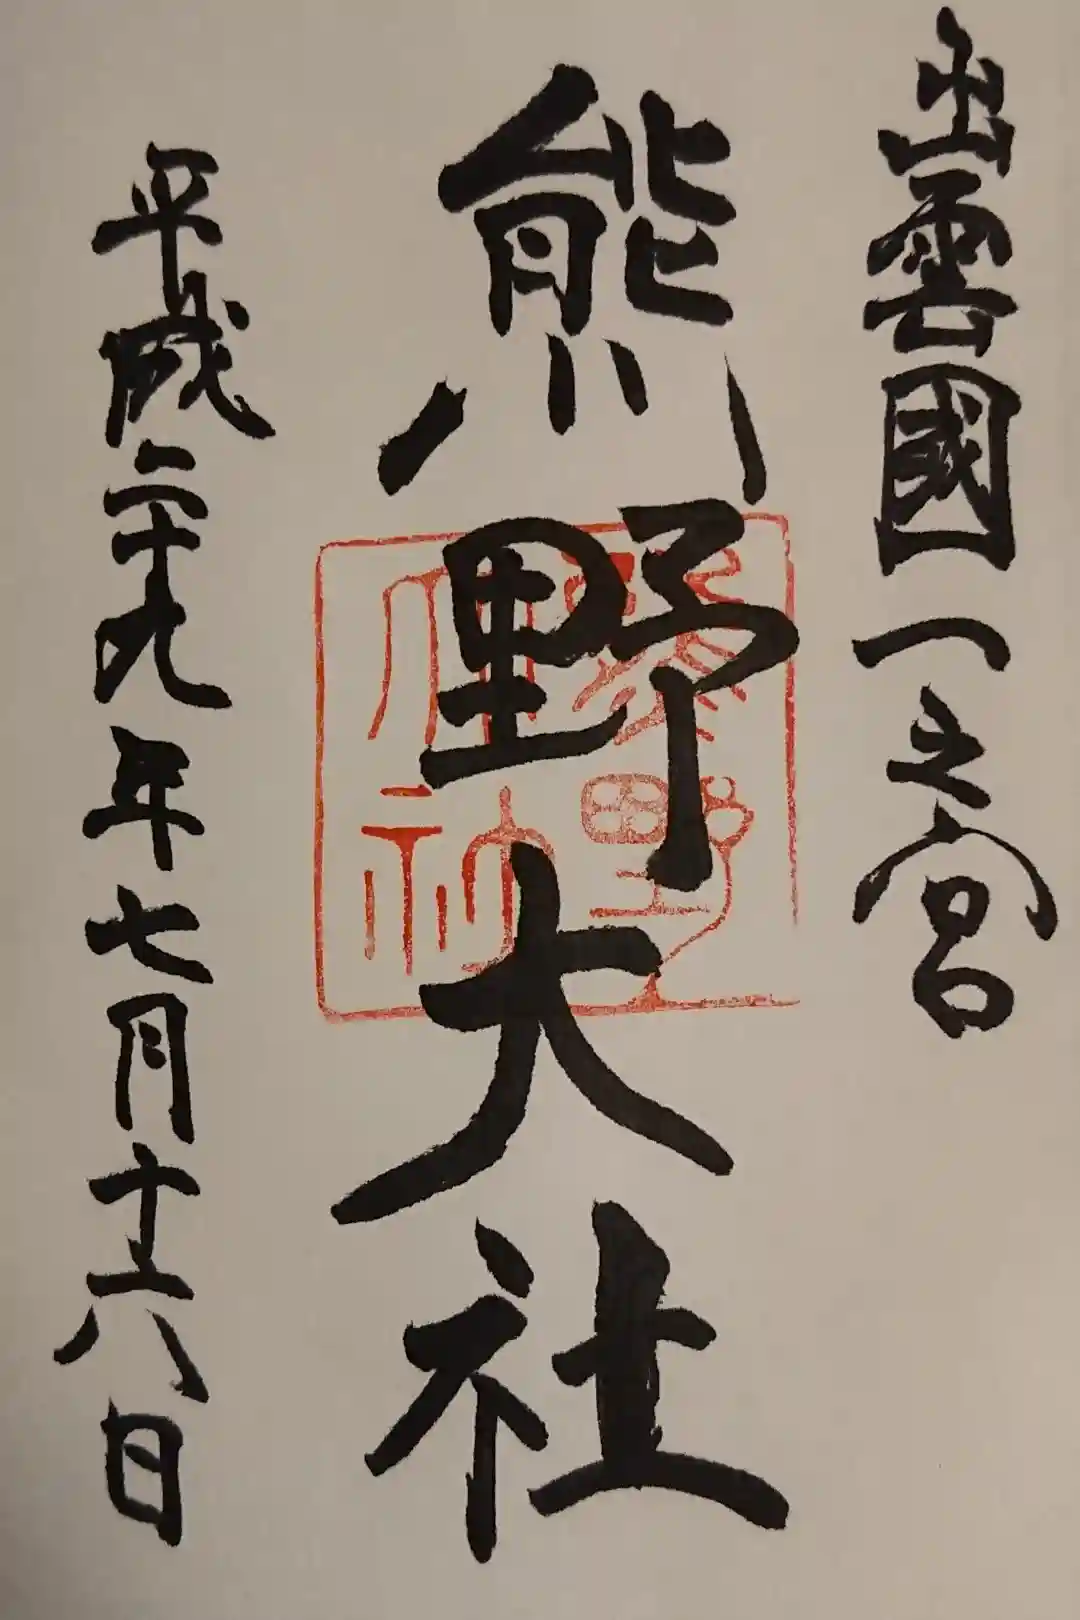 出雲國一之宮
熊野大社
平成二十九年七月十六日
熊野大社